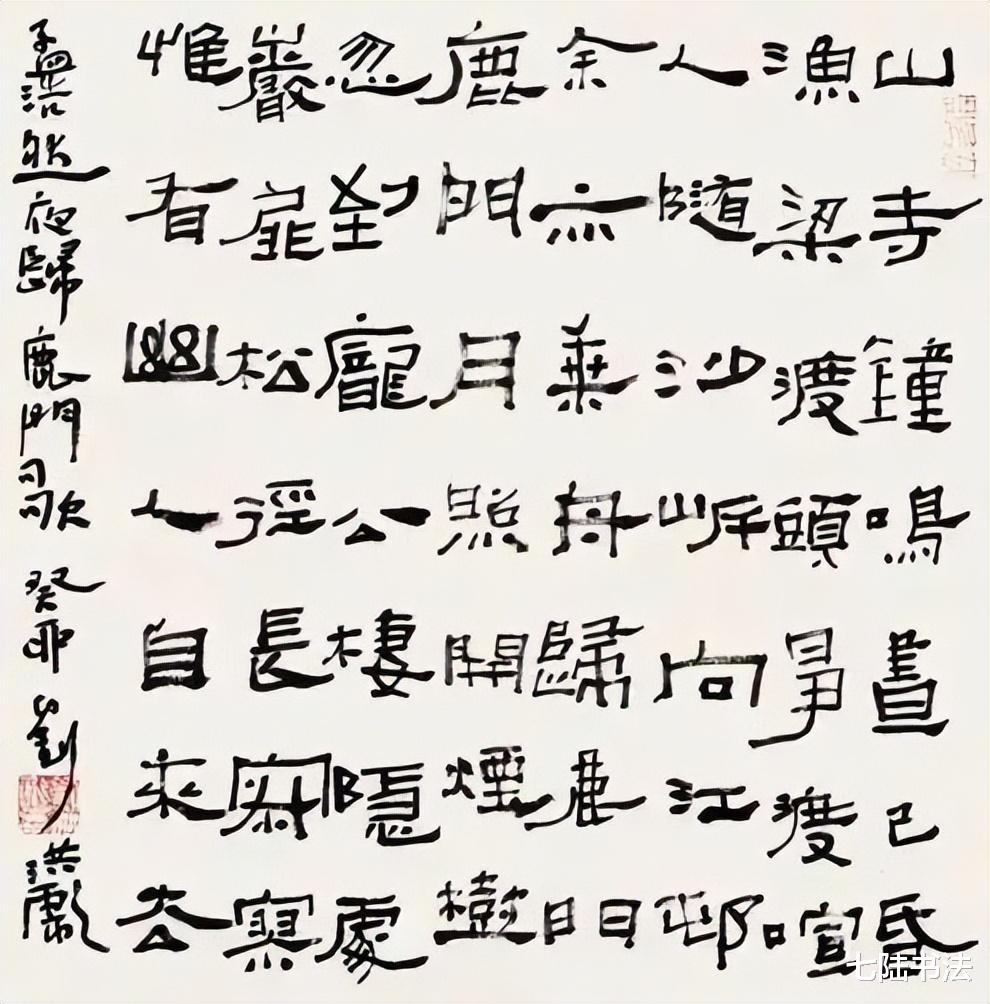 山寺鐘鳴晝已昏
漁梁渡頭爭渡喧
人隨沙岸向江邨
余亦乘舟歸鹿門
鹿門月照開煙樹
忽到龐公棲隱處
巖扉松徑長寂寥
惟有幽人自來去
孟浩然夜歸鹿門歌 癸卯 劉洪彪
七陆书法